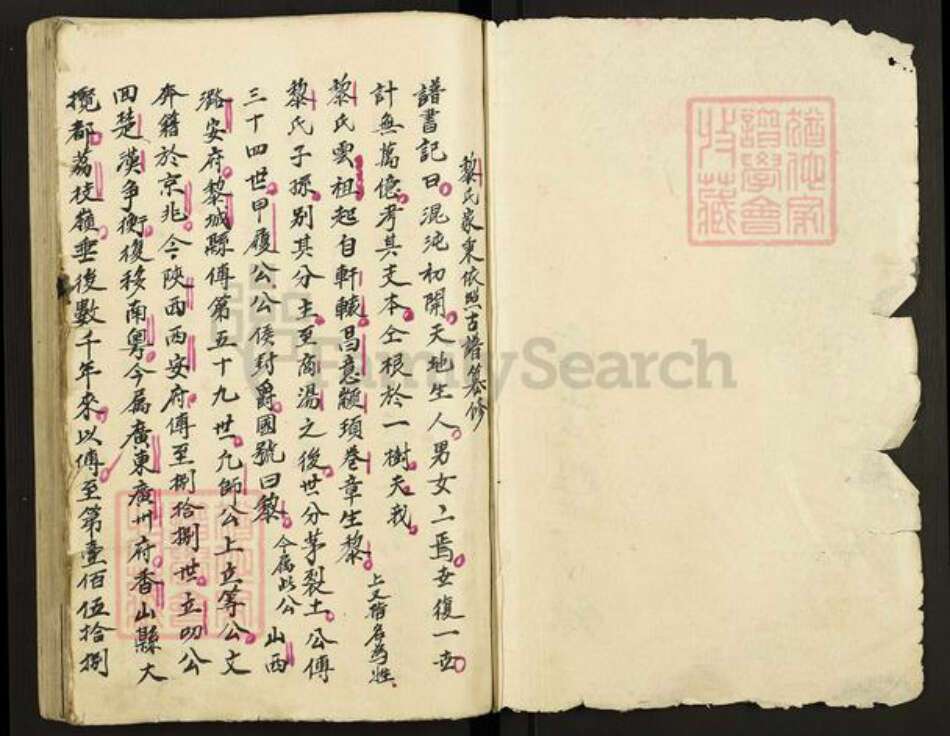 黎氏家乘依照古譜篡修
譜書記曰混沌初開天地生人男女二焉世復一世
計無萬億考其支本仝根於一樹夫哉
上文借名為姓
黎氏雲祖起自軒轅昌意顓頊卷章生黎
黎氏子孫別其分土至商湯之後世分茅裂土公傳
三十四世甲履公公侯封爵國號曰黎
今属此公
山西
潞安府黎城縣傳第五十九世九師公上立等公文
奔籍於京兆今陝西西安府傳至捌拾捌世立叨公
回楚漢争衡復移南粵今屬廣東廣州府香山縣大
攬都荔枝嶺垂後數千年來以傳至第壹佰伍拾捌
譜學會
收藏
FamilySearch